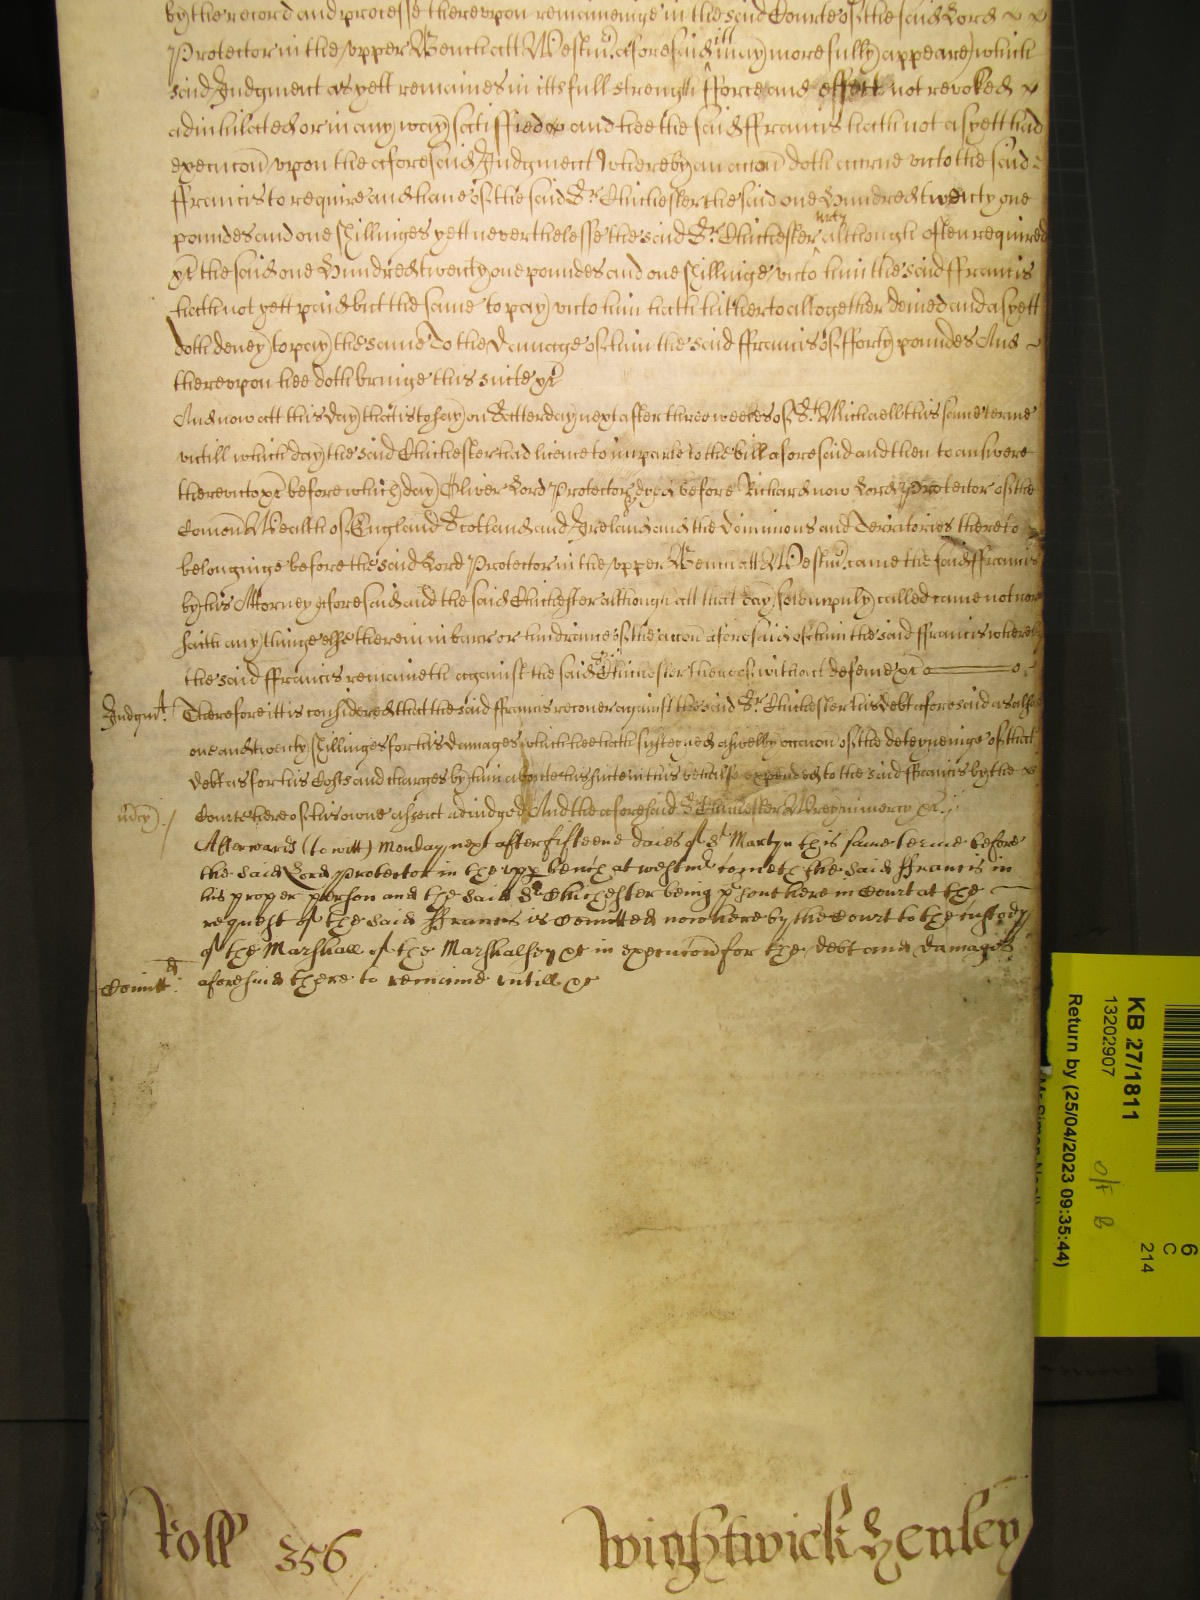 by the record and processe thereupon remaineinge in the said Courte of the said Lord
Protector in the upper Bench att Westm̃. aforesaid ill may more fully appeare which
said Judgment as yett remaines in itts full strength fforce and effect not revoked
adnihilated or in any way satisffied and hee the said ffrancis hath not as yett had
execucon̄ upon the aforesaid Judgment whereby an accon̄ doth accrue unto the said
ffrancis to require and have of the said Sr. Chichester the said one hundred twenty one
poundes and one shillinges yett neverthelesse the said Sr. Chichester although often required
&c the said one hundred twenty one poundes and one shillinge unto him the said ffrancis
hath not yett paid but the same to pay unto him hath hitherto altogether denied and as yett
doth deney to pay the same To the damage of him the said ffrancis of fforty poundes And
thereupon hee doth bringe this suite &c
And now att this day that is to say on Satterday next after three weekes of St. Michaell this same terme
untill which day the said Chichester had licence to imparle to the bill aforesaid and then to answere
thereunto &c before which day Oliver Lord Protector dyed before Richard now Lord Protector of the
Com̄on Wealth of England Scotland and Ireland and the dominions and Territories thereto
belonginge before the said Lord Protector in the upper Bench att Westm̃. came the said ffrancis
by his Attorney aforesaid and the said Chichester although att that day solempnly called came not nor
saith any thinge else therein in barr or hindrance of the accon̄ aforesaid of him the said ffrancis whereby
the said ffrancis remaineth against the said Sr. Chichester thereof without defence &c
Judgmt. Therefore itt is considered that the said ffrancis recover against the said Sr. Chichester his debt aforesaid as alsoe
one and twenty shillinges for his damages which hee hath susteined aswell by occacon̄ of the deteyneinge of that
debt as for his Costs and charges by him aboute his suite in this behalfe expended to the said ffrancis by the
m̃cy. Courte here of his owne assent adiudged And the aforesaid Sr. Chichester Wrey in mercy &c
Afterwards (to witt) Monday next after fifteene daies of St Martyn this same terme before
the said Lord Protector in the upp bench at westm̃ cometh the said ffrancis in
his proper person and the said Sr Chichester being p̃sent here in Court at the
request of the said ffrancis is Com̄itted now here by the Court to the custody
of the Marshall of the Marshalsey &c in execucon̄ for the debt and damages
Com̄ittd. aforesaid there to remaine untill &c
Roll 356 Wightwick Henley
KB 27/1811
13202907
Return by (25/04/2023 09:35:44)
O/F B
6
C
214